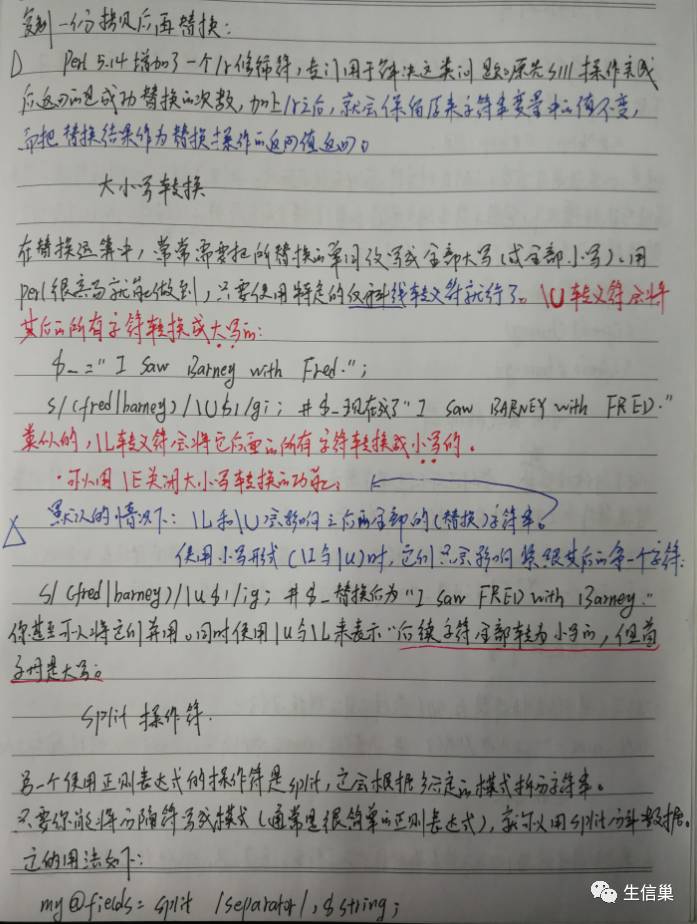 复制一份拷贝后再替换：
Perl 5.14增加了一个/r修饰符，专门用于解决这类问题。原先s///操作完成
后返回的是成功替换的次数，加上/r之后，就会保留原来字符串变量中的值不变，
而把替换结果作为替换操作的返回值返回。
大小写转换
在替换运算中，常常需要把所替换的单词改写成全部大写（或全部小写）。用
Perl很容易就能做到，只要使用特定的反斜线转义符就行了。\U转义符会将
其后的所有字符转换成大写的：
$_="I saw Barney with Fred.";
s/(fred|barney)/\U$1/gi; #$_现在成了"I saw BARNEY with FRED."
类似的，\L转义符会将它后面的所有字符转换成小写的。
·可以用\E关闭大小写转换的功能：
默认的情况下：\L和\U会影响之后全部的(替换)字符串。
使用小写形式(\l与\u)时，它们只会影响紧跟其后的第一个字符：
s/(fred|barney)/\u$1/ig; #$_替换后为"I saw FRED with Barney."
你甚至可以将它们并用。同时使用\u与\L来表示"后续字符全部转为小写的，但首
字母是大写。
split 操作符.
另一个使用正则表达式的操作符是split，它会根据给定的模式拆分字符串。
只要你能将分隔符写成模式（通常是很简单的正则表达式），就可以用split分解数据。
它的用法如下：
my @fields = split /separator/, $string;
生信巢